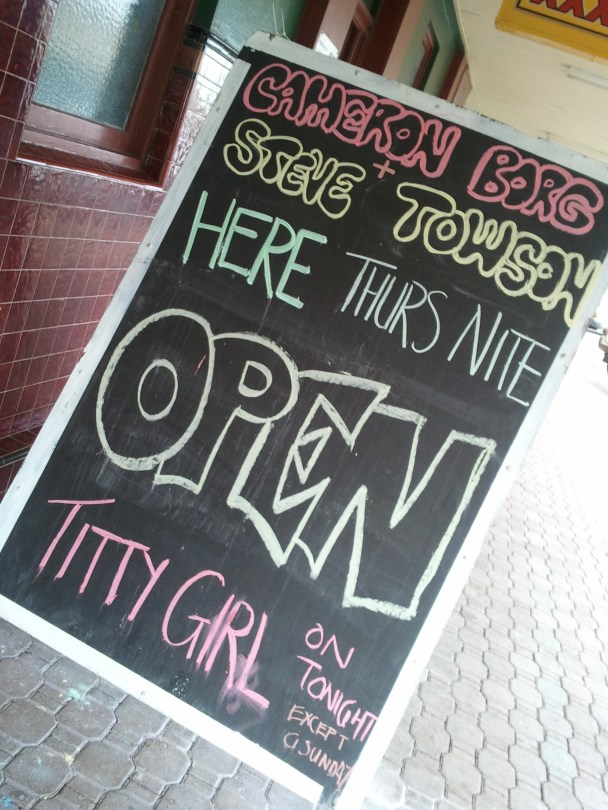 CAMERON BORG
+
STEVE TOWSON
HERE THURS NITE
OPEN
TITTY GIRL
ON
TONIGHT
EXCEPT
XXX